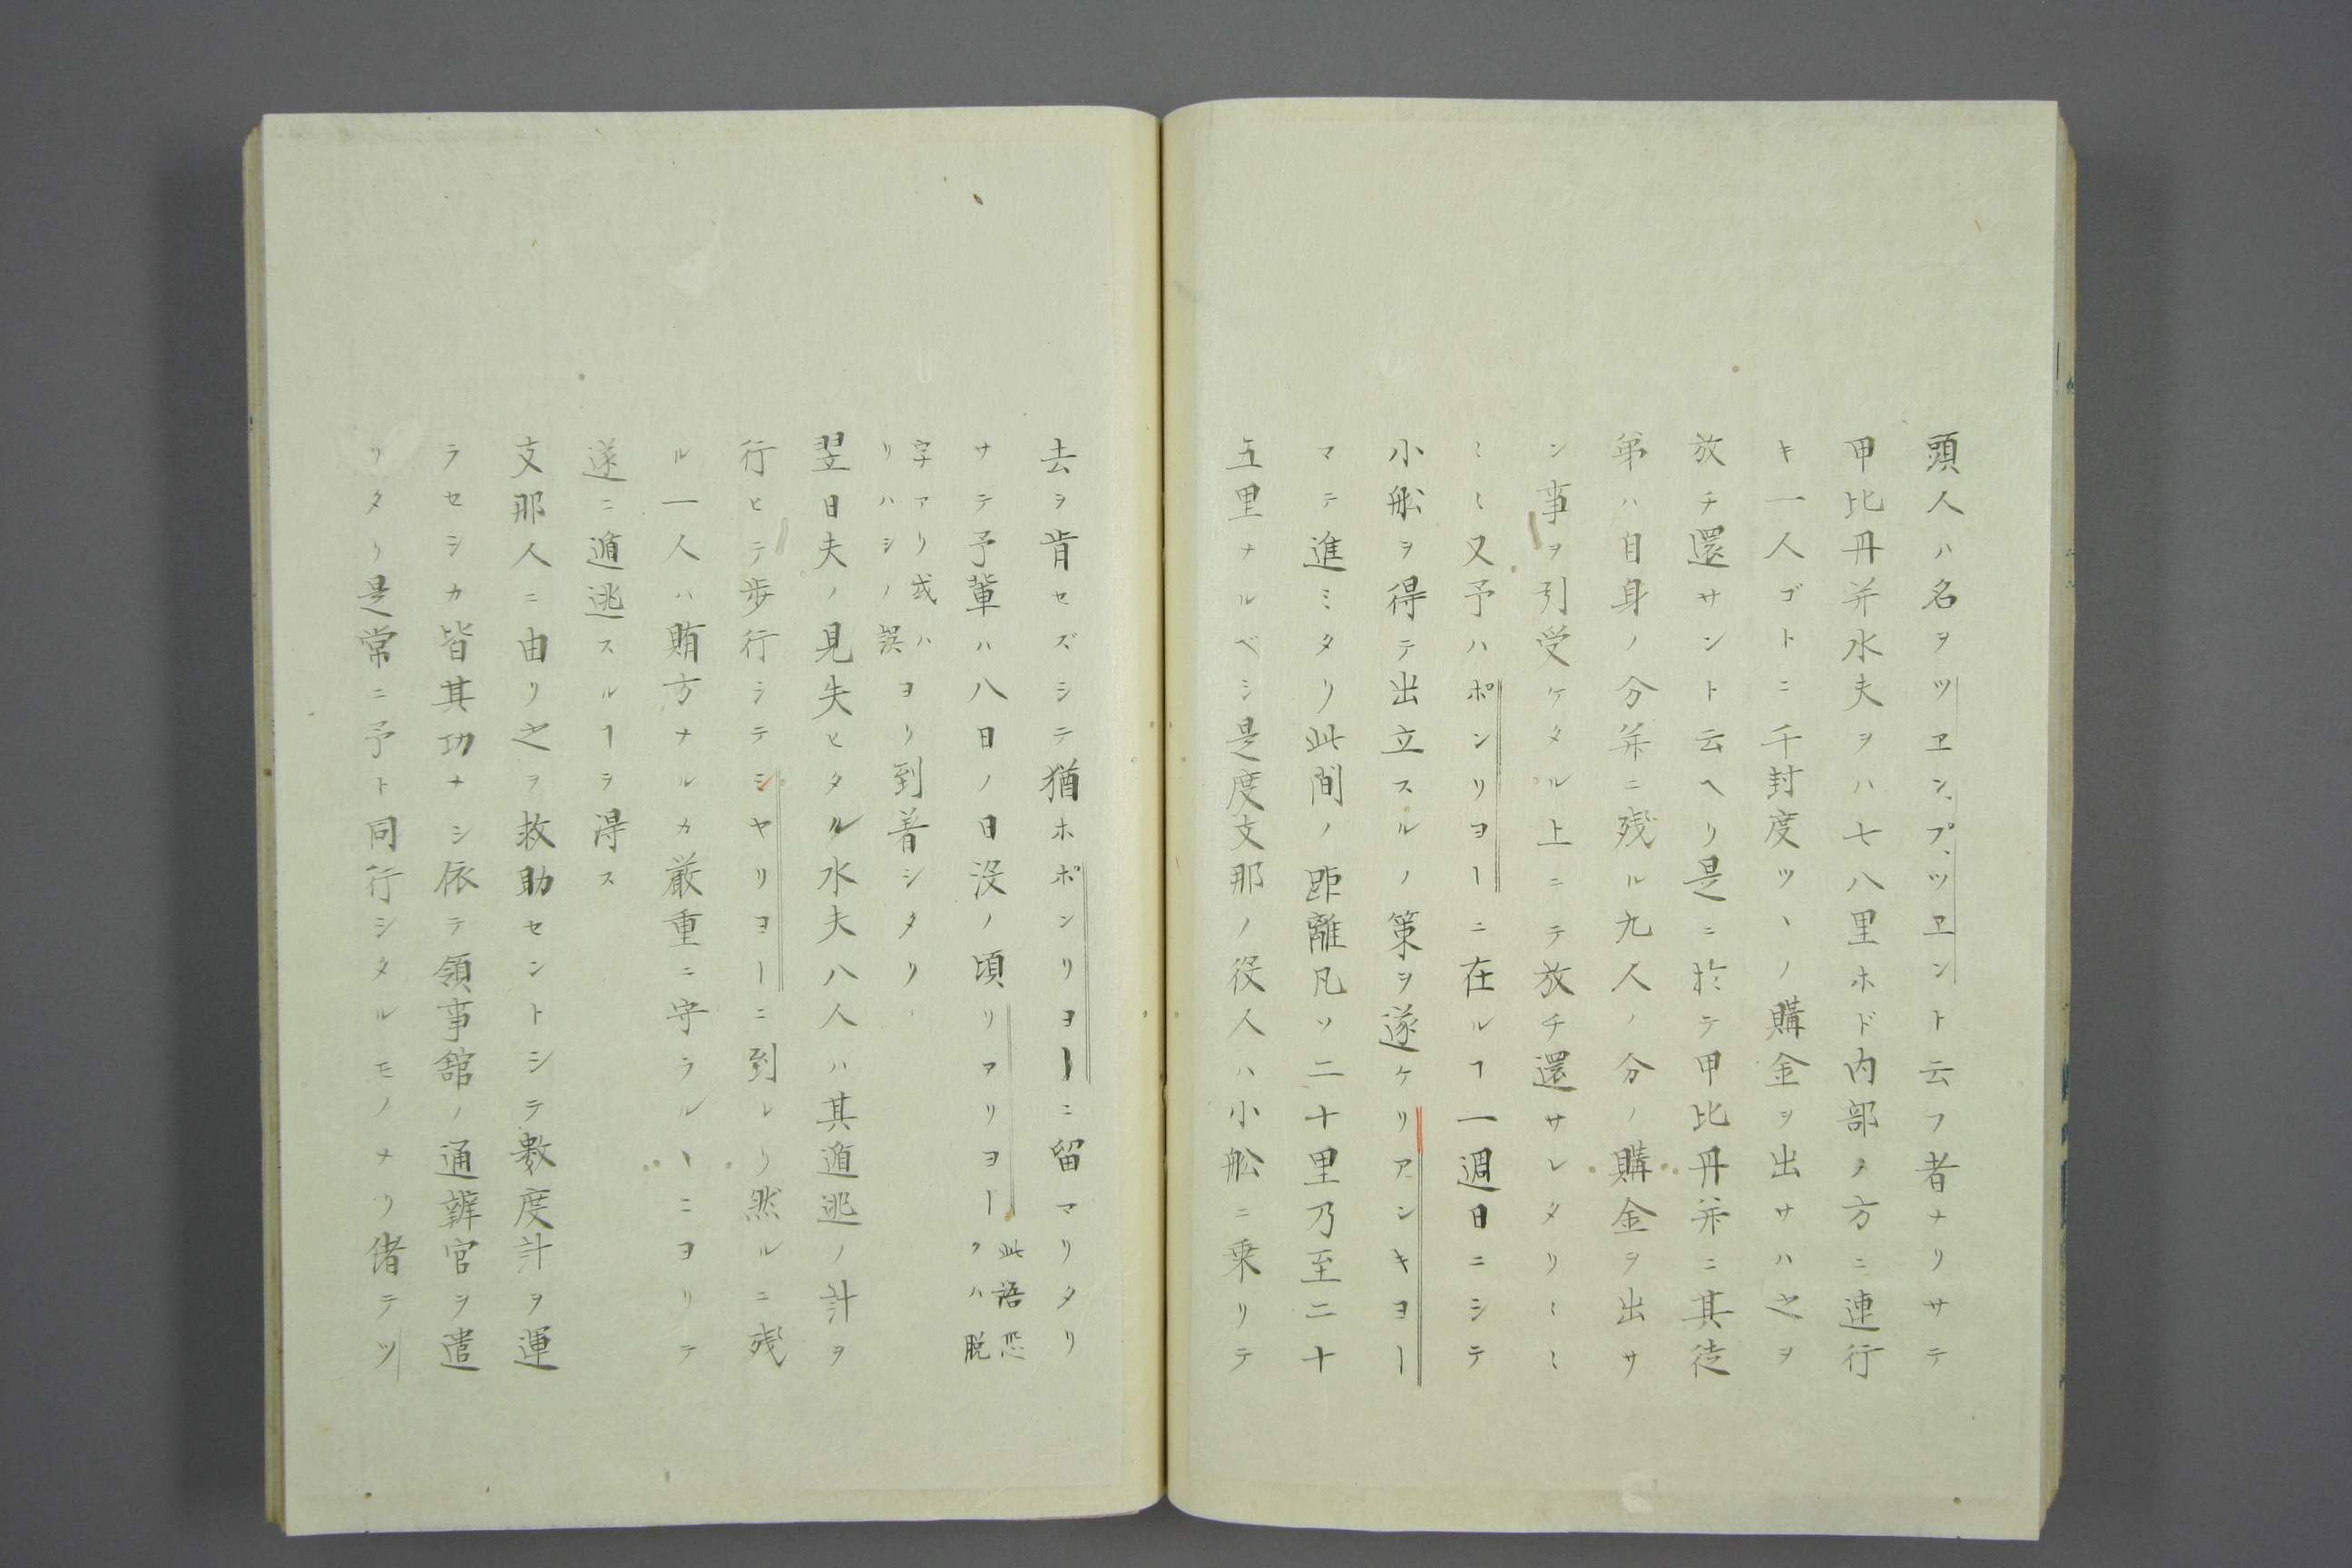 頭人ハ名ヲツヱンプ、ツヱント云フ者ナリサテ
甲比丹并水夫ヲハ七八里ホド内部ノ方ニ連行
キ一人ゴトニ千封度ツヽノ購金ヲ出サハ之ヲ
放チ還サント云ヘリ是ニ於テ甲比丹并ニ其徒
弟ハ自身ノ分并ニ残ル九人ノ分ノ購金ヲ出サ
ン事ヲ引受ケタル上ニテ放チ還サレタリミミ
ミミ又予ハポンリヨーニ在ルヿ一週日ニシテ
小舩ヲ得テ出立スルノ策ヲ遂ケリアンキヨー
マテ進ミタリ此間ノ距離凡ソ二十里乃至二十
五里ナルベシ是度支那ノ役人ハ小舩ニ乗リテ
去ヲ肯セズシテ猶ホポンリヨーニ留マリタリ
サテ予輩ハ八日ノ日没ノ頃リアリヨー此語恐クハ脱
字アリ或ハリハシノ誤ヨリ到着シタリ
翌日夫ノ見失ヒタル水夫八人ハ其遁逃ノ計ヲ
行ヒテ歩行シテシヤリヨーニ到レリ然ルニ残
ル一人ハ賄方ナルカ厳重ニ守ラルヽニヨリテ
遂ニ遁逃スルヿヲ得ス
支那人ニ由リ之ヲ救助セントシテ數度計ヲ運
ラセシカ皆其功ナシ依テ領事舘ノ通辨官ヲ遣
リタリ是常ニ予ト同行シタルモノナリ偖テツ